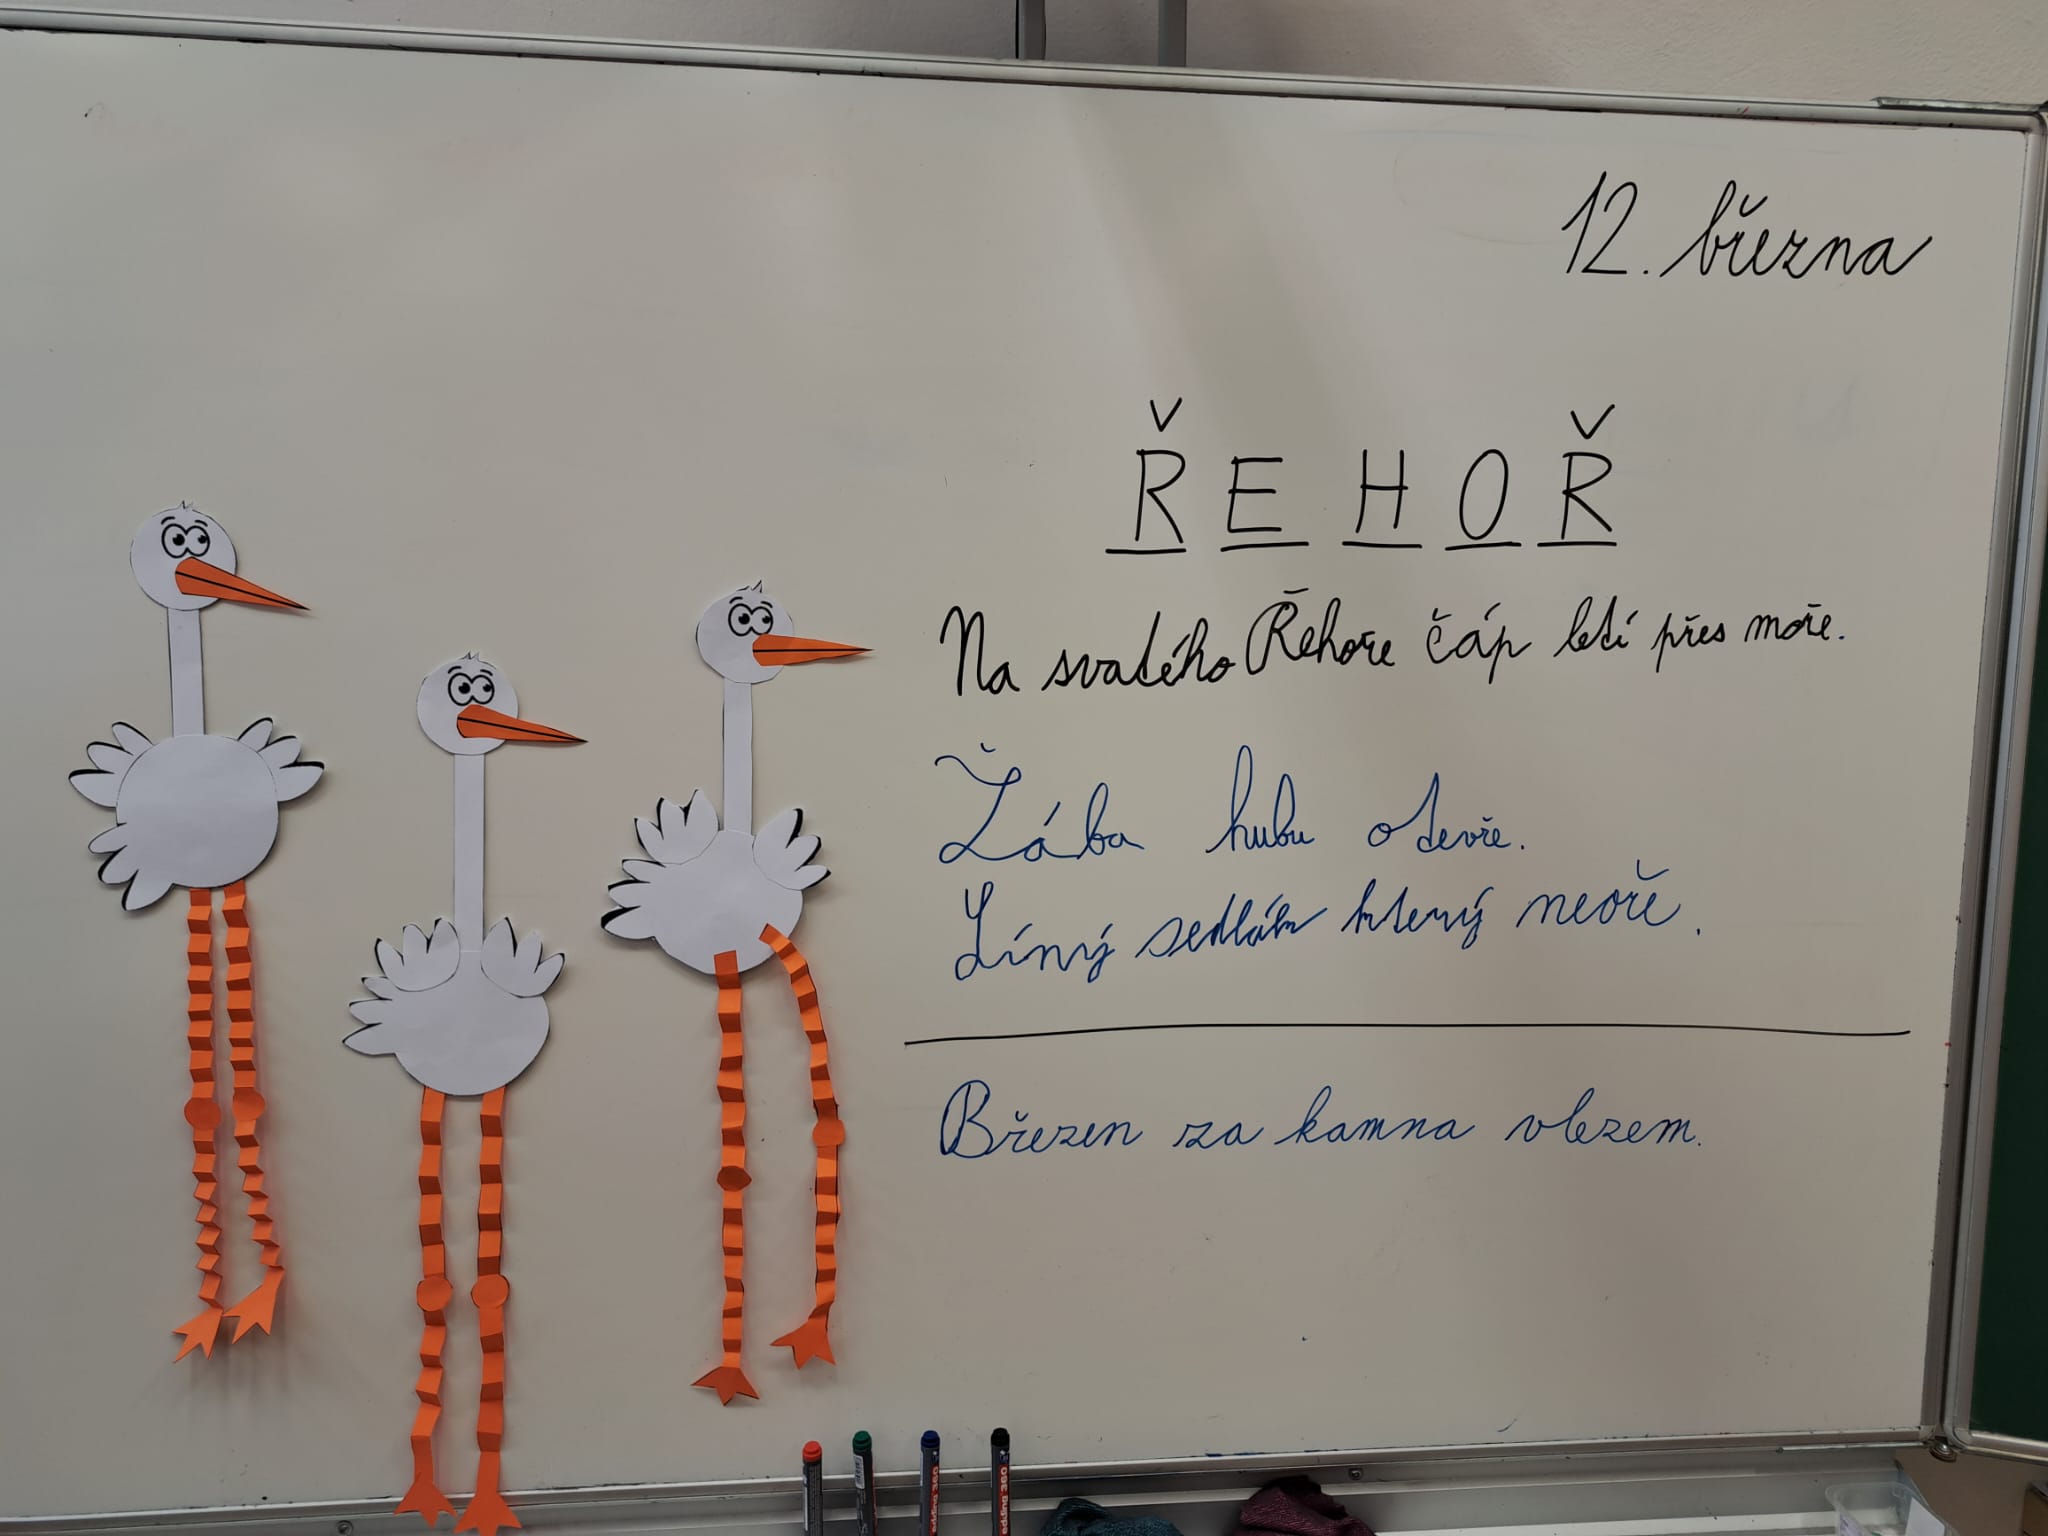 12. března
ŘEHOŘ
Na svatého Řehoře čáp letí přes moře.
Žába hubu otevře.
Líný sedlák který neoře.
Březen za kamna vlezem.
edding 360
edding 360